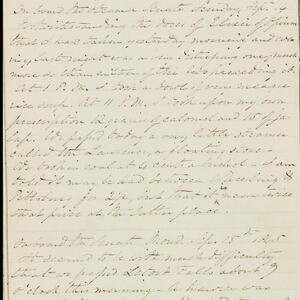 On board the Steamer Senate Sunday Sep. 14
Notwithstanding the dose of Elixir of opium
that I was taken yesterday morning and eve
ning last night was a very distressing one, much
more so than either of the two preceding it.
At 1 P.M. I took a bowl of very meagre
rice soup. At 11 P.M. I took upon my own
prescription 12 grains of calomel and 15 of ja
lap. We passed today a very little steamer
called the Lawrence, a floating store.
We took in coal at 4 cents a bushel - I am
told it may be had between Wheeling &
Pittsburg for 2½, but that it is near twice
that price at the latter place.
On board the Senate Mond. Sep. 15th 1845
It seemed to be with much difficulty
that we passed Letart Falls about
o'clock this morning. A hawser was